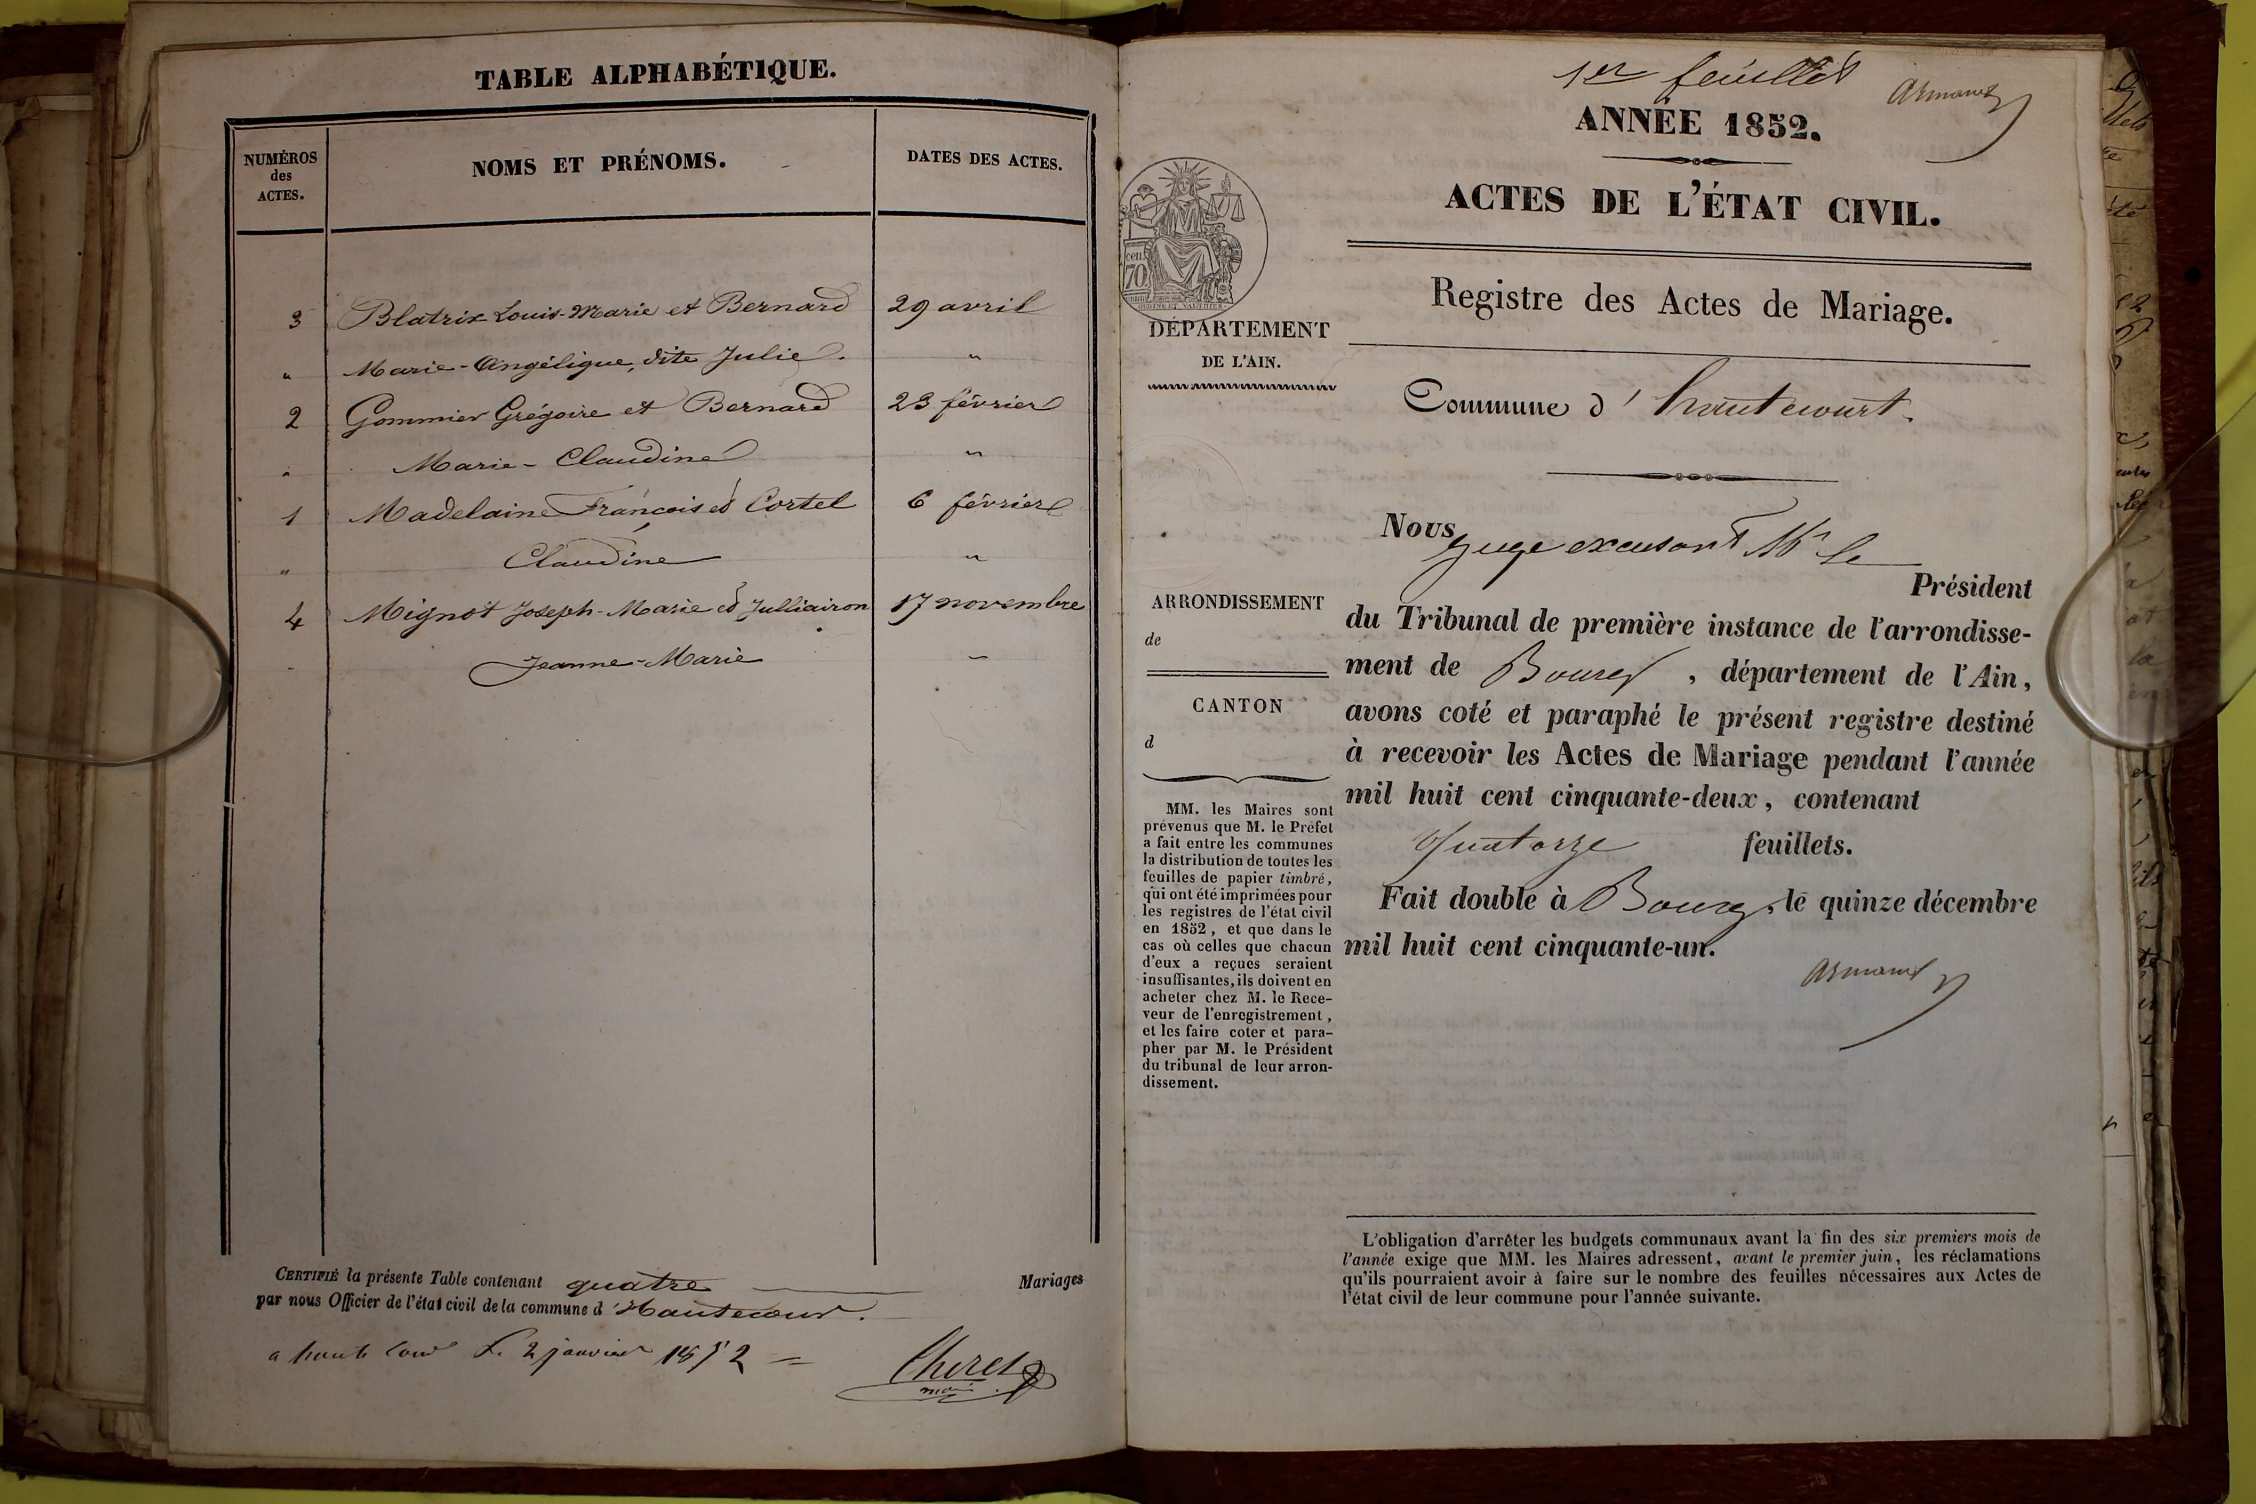 TABLE ALPHABÉTIQUE.
NUMÉROS
des
ACTES.
NOMS ET PRÉNOMS.
DATES DES ACTES.
3 Blatrix Louis-Marie et Bernard 29 avril
" Marie-Angélique, dite Julie. "
2 Gommier Grégoire et Bernard 23 février
" Marie-Claudine "
1 Madelaine François et Cortel 6 février
" Claudine "
4 Mignot Joseph-Marie et Julliairon 17 novembre
- Jeanne-Marie "
CERTIFIÉ la présente Table contenant quatre Mariages
par nous Officier de l'état civil de la commune d'Hautecour.
a haute Cour le 2 janvier 1852
Cheret
maire
1er feuillet
Armand
ANNÉE 1852.
ACTES DE L'ÉTAT CIVIL.
Registre des Actes de Mariage.
cen.
70
DÉPARTEMENT
DE L'AIN.
Commune d'hautecourt.
Nous
Juge excusant Mr le
Président
du Tribunal de première instance de l'arrondisse-
ment de Bourg, département de l'Ain,
avons coté et paraphé le présent registre destiné
à recevoir les Actes de Mariage pendant l'année
mil huit cent cinquante-deux, contenant
Quatorze feuillets.
Fait double à Bourg, le quinze décembre
mil huit cent cinquante-un.
Armand
ARRONDISSEMENT
de
CANTON
d
MM. les Maires sont
prévenus que M. le Préfet
a fait entre les communes
la distribution de toutes les
feuilles de papier timbré,
qui ont été imprimées pour
les registres de l'état civil
en 1852, et que dans le
cas où celles que chacun
d'eux a reçues seraient
insuffisantes, ils doivent en
acheter chez M. le Rece-
veur de l'enregistrement,
et les faire coter et para-
pher par M. le Président
du tribunal de leur arron-
dissement.
L'obligation d'arrêter les budgets communaux avant la fin des six premiers mois de
l'année exige que MM. les Maires adressent, avant le premier juin, les réclamations
qu'ils pourraient avoir à faire sur le nombre des feuilles nécessaires aux Actes de
l'état civil de leur commune pour l'année suivante.